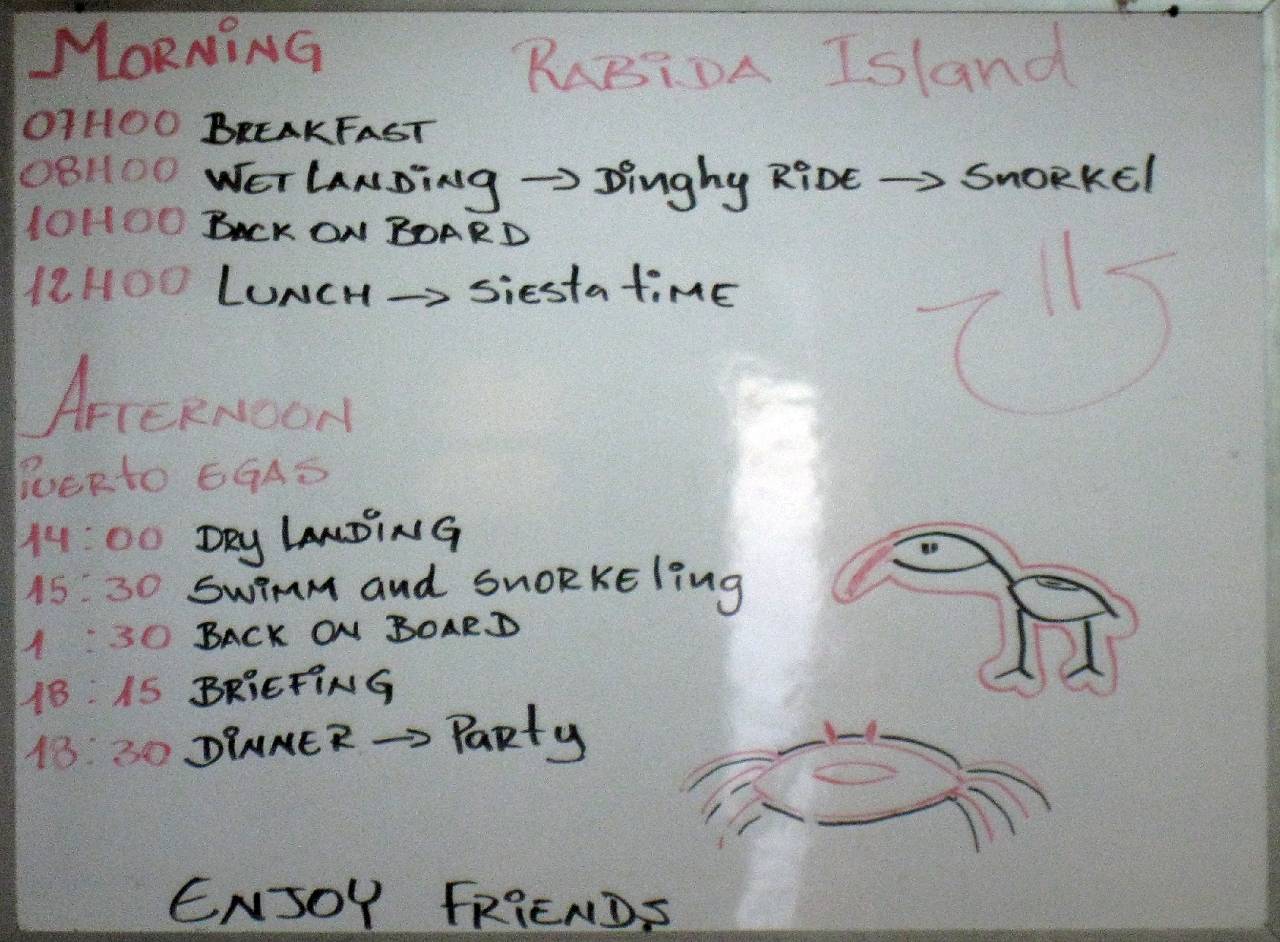 MORNiNG RABiDA Island
07H00 BREAKFAST
08H00 WET LANDiNg → Dinghy RiDE → SnORKEl
10H00 BACK ON BOARD
12H00 LUNCH → SiEsta tiME
AFTERNOON
PUERto EGAS
14:00 DRy LANDiNG
15:30 SWiMM and SnORKEling
1 :30 BACK ON BOARD
18:15 BRiEFiNG
18:30 DiNNER → PaRty
ENJOY FRiENDS